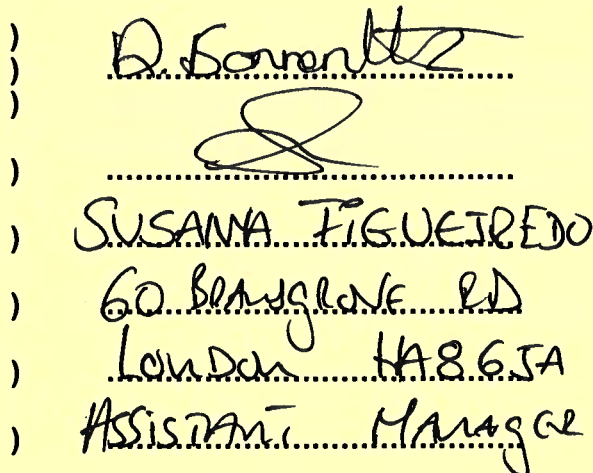 SUSANNA FIGUEIREDO
60 BRANSGROVE RD
LONDON HA8 6JA
ASSISTANT MANAGER